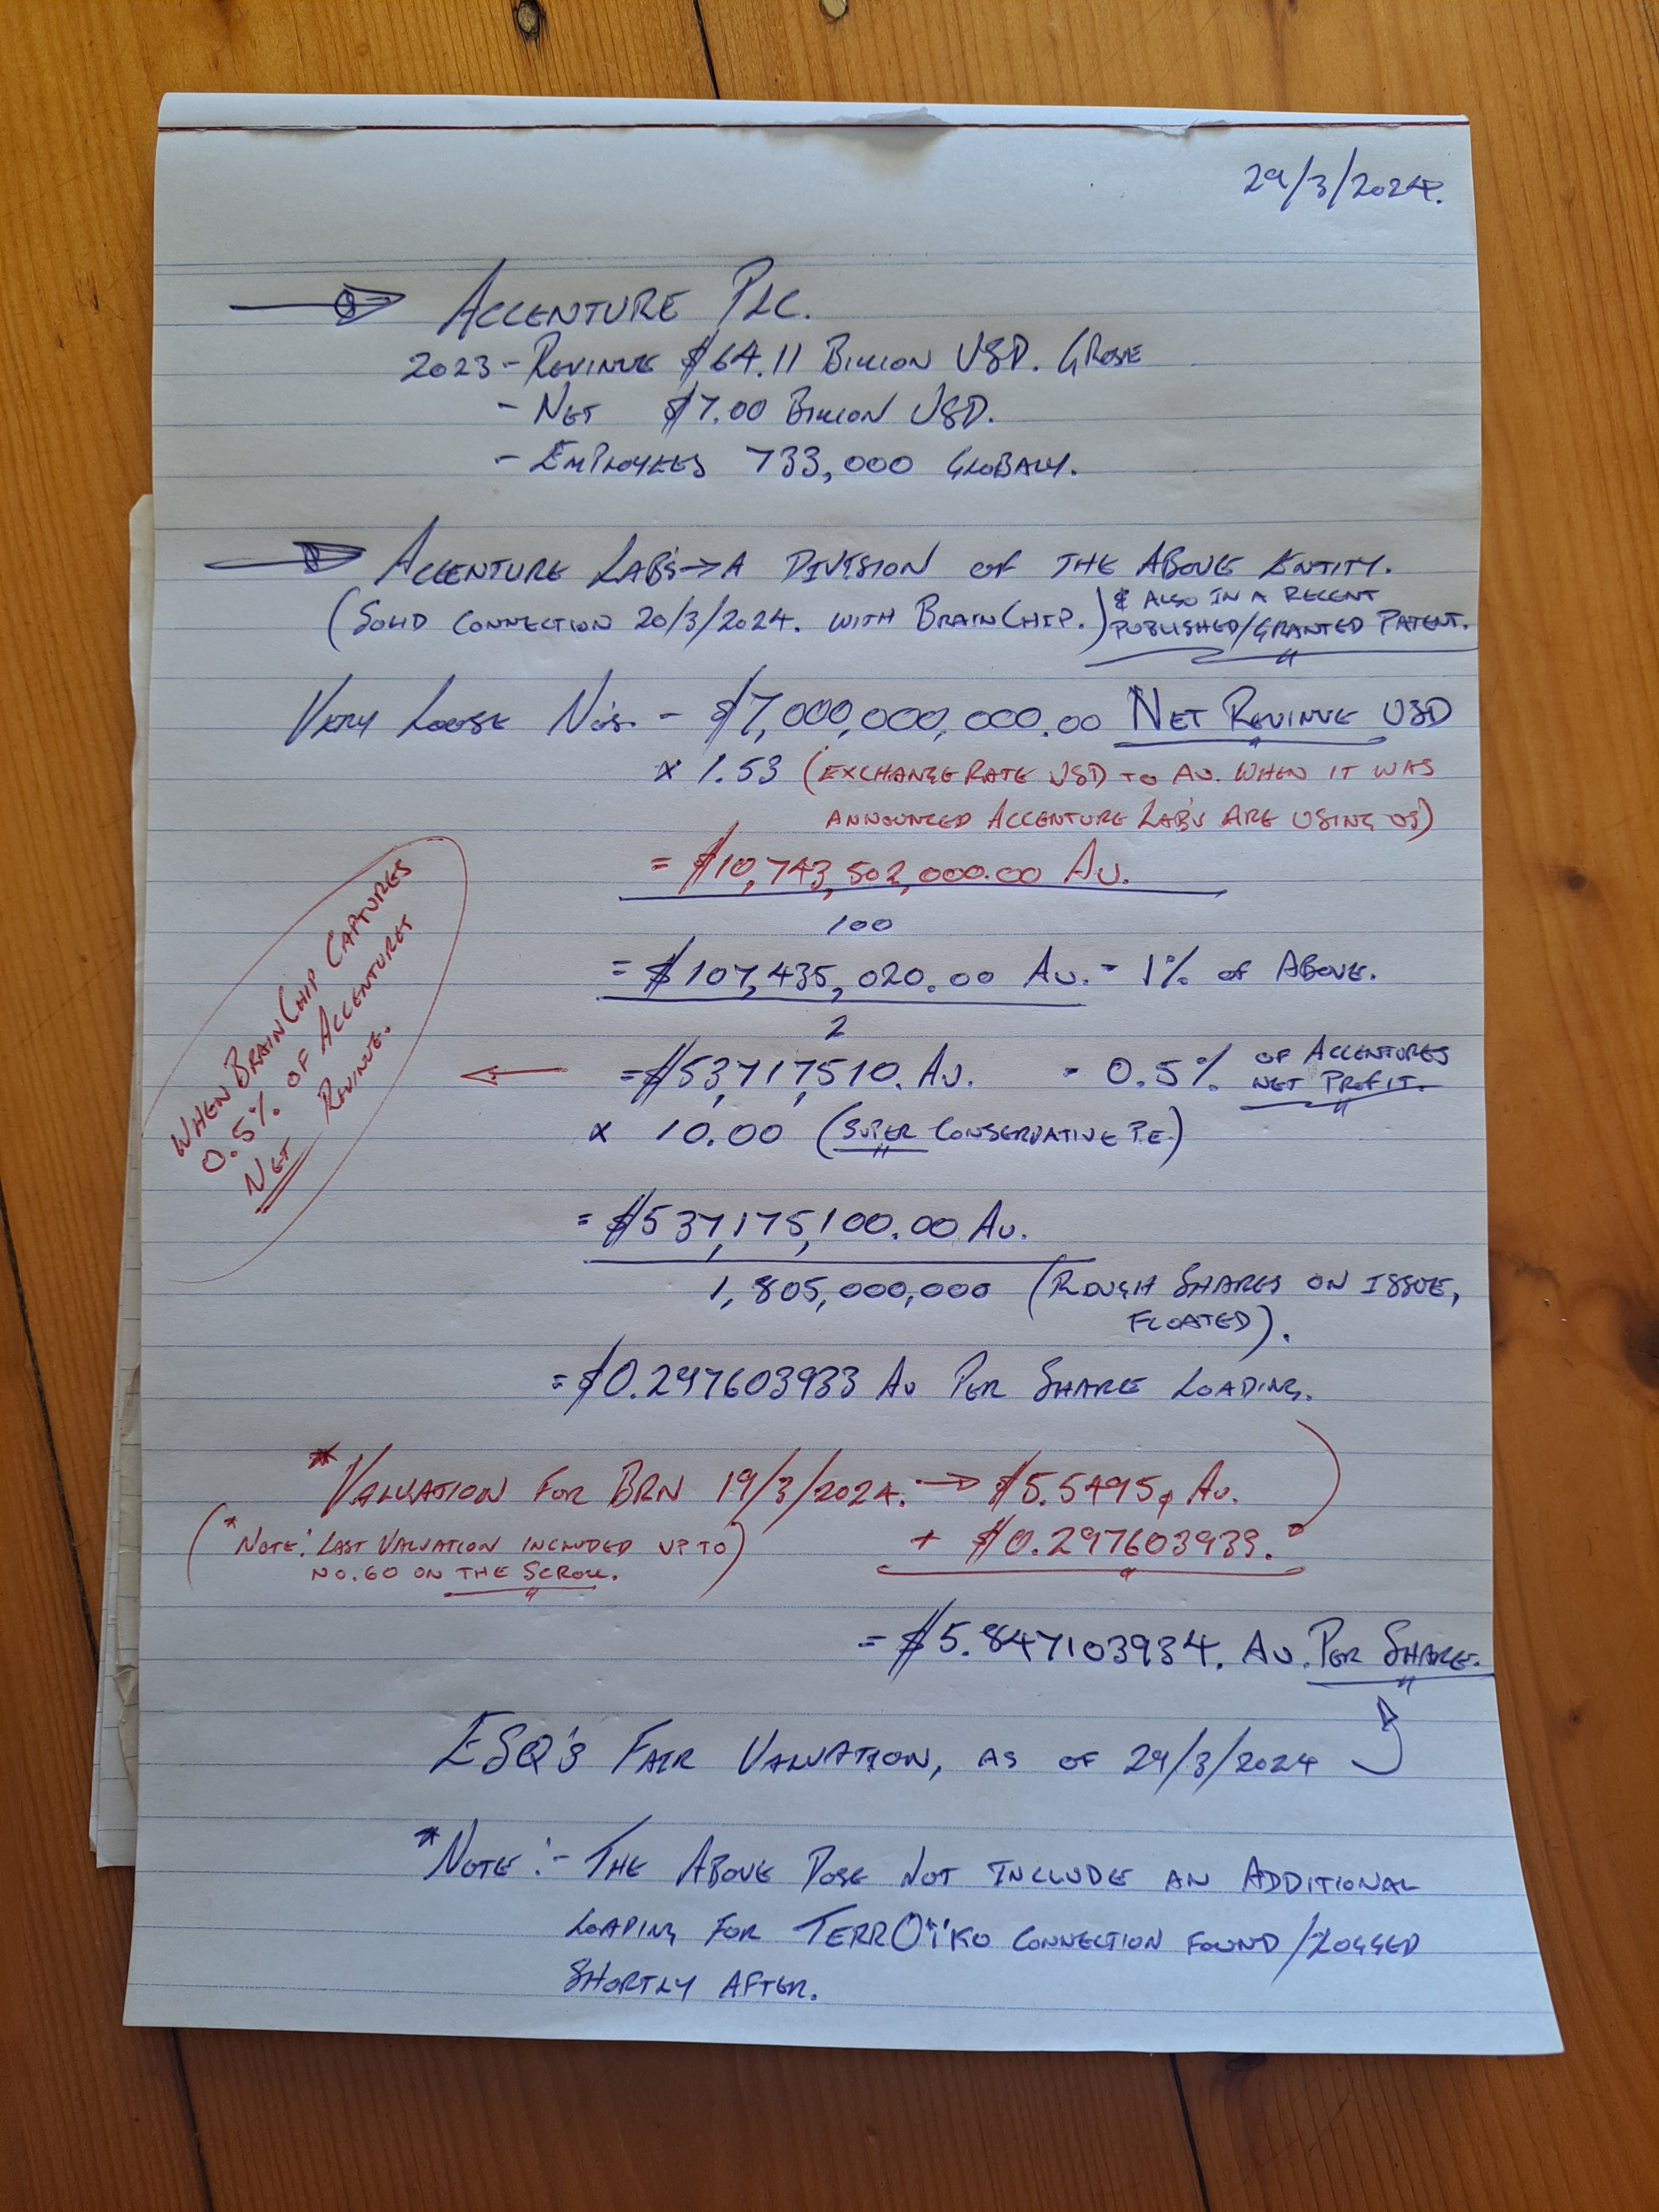 29/3/2024.
ACCENTURE PLC.
2023 - REVINUE $64.11 BILLION USD. GROSE
- NET $7.00 BILLION USD.
- EMPLOYEES 733,000 GLOBALY.
ACCENTURE LAB'S → A DIVISION OF THE ABOVE ENTITY.
(SOLID CONNECTION 20/3/2024. WITH BRAINCHIP.) & ALSO IN A RECENT
PUBLISHED/GRANTED PATENT.
VERY LOOSE NO'S. - $7,000,000,000.00 NET REVINUE USD
× 1.53 (EXCHANGE RATE USD TO AU. WHEN IT WAS
ANNOUNCED ACCENTURE LAB'S ARE USING US)
= $10,743,502,000.00 AU.
100
= $107,435,020.00 AU. - 1% OF ABOVE.
2
= $53,717,510. AU. - 0.5% OF ACCENTURES
NET PROFIT.
× 10.00 (SUPER CONSERVATIVE P.E.)
WHEN BRAINCHIP CAPTURES
0.5% OF ACCENTURES
NET REVINUE.
= $537,175,100.00 AU.
1,805,000,000 (ROUGH SHARES ON ISSUE,
FLOATED).
= $0.297603933 AU PER SHARE LOADING.
* VALUATION FOR BRN 19/3/2024. → $5.5495, AU.
(* NOTE: LAST VALUATION INCLUDED UP TO
NO.60 ON THE SCROLL.)
+ $0.297603933.
= $5.847103934. AU. PER SHARE.
ESQ'S FAIR VALUATION, AS OF 29/3/2024
* NOTE :- THE ABOVE DOSE NOT INCLUDE AN ADDITIONAL
LOADING FOR TERROÏKO CONNECTION FOUND/LOGGED
SHORTLY AFTER.